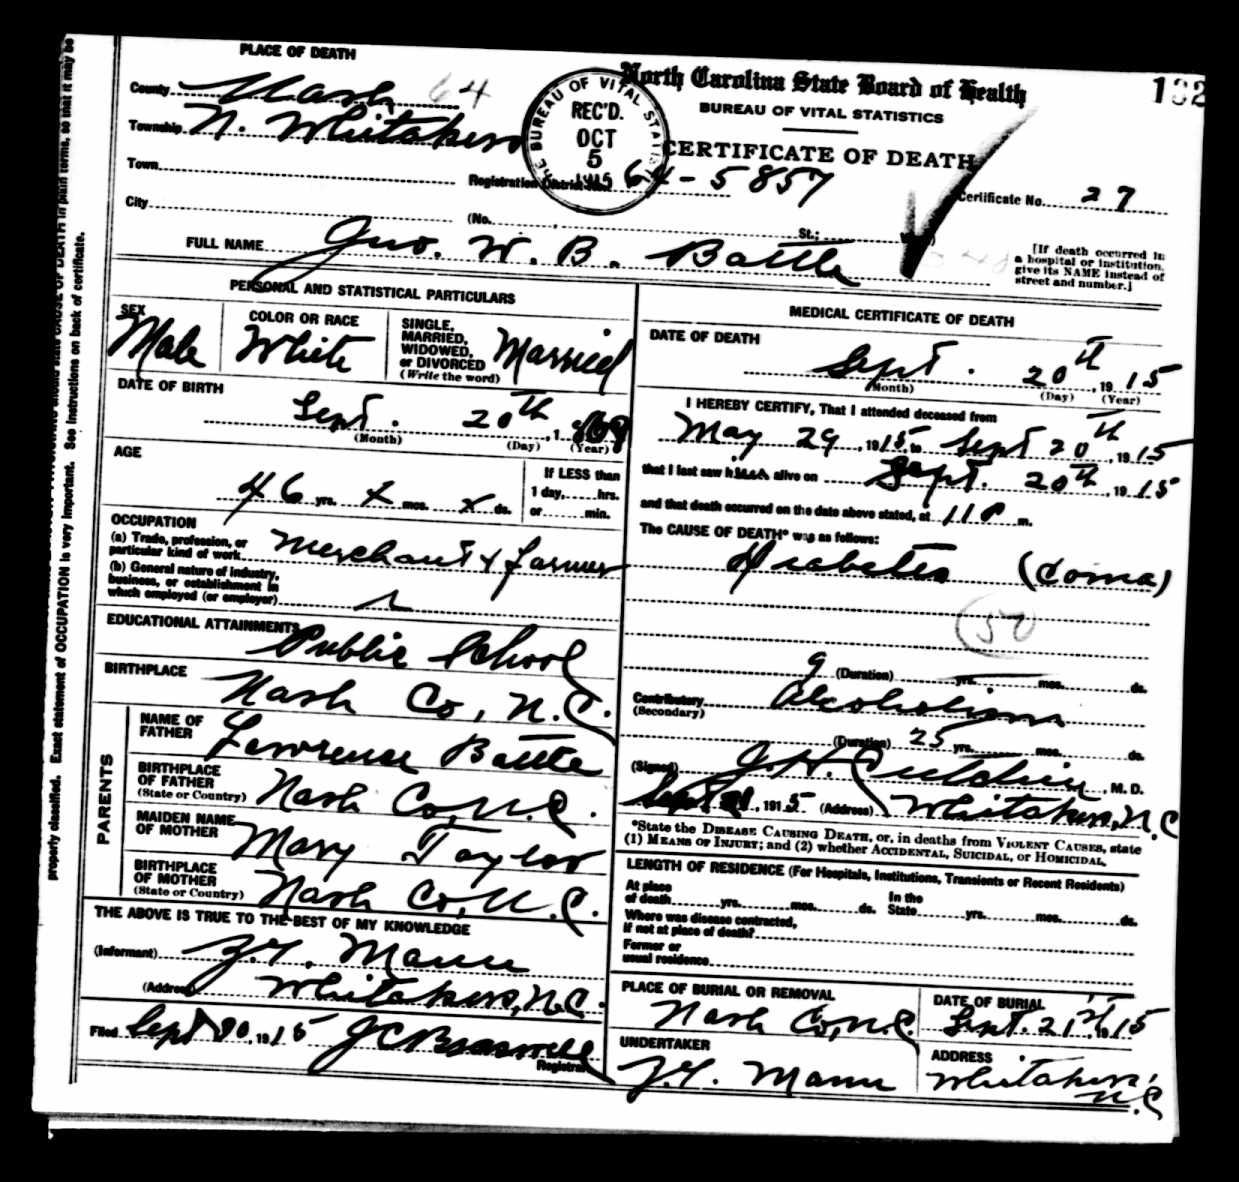 PLACE OF DEATH
County Nash 64
Township N. Whitakers
Town
City
North Carolina State Board of Health
BUREAU OF VITAL STATISTICS
CERTIFICATE OF DEATH
132
BUREAU OF VITAL STATIS
REC'D.
OCT
5
1915
Registration District No. 64-5857
Certificate No. 27
(No. St.;
FULL NAME Geo. W. B. Battle
[If death occurred in
a hospital or institution,
give its NAME instead of
street and number.]
PERSONAL AND STATISTICAL PARTICULARS
SEX
Male
COLOR OR RACE
White
SINGLE,
MARRIED,
WIDOWED,
or DIVORCED
(Write the word)
Married
DATE OF BIRTH
Sept. 20th, 1869
(Month) (Day) (Year)
AGE
46 yrs. x mos. x ds.
If LESS than
1 day, hrs.
or min.
OCCUPATION
(a) Trade, profession, or
particular kind of work Merchant & farmer
(b) General nature of industry,
business, or establishment in
which employed (or employer)
EDUCATIONAL ATTAINMENTS
Public School
BIRTHPLACE
Nash Co, N.C.
PARENTS
NAME OF
FATHER
Lawrence Battle
BIRTHPLACE
OF FATHER
(State or Country) Nash Co, N.C.
MAIDEN NAME
OF MOTHER
Mary Taylor
BIRTHPLACE
OF MOTHER
(State or Country) Nash Co, N.C.
THE ABOVE IS TRUE TO THE BEST OF MY KNOWLEDGE
(Informant) Mann
(Address) Whitakers, N.C.
Filed Sept 1915 J C Braswell
Registrar
MEDICAL CERTIFICATE OF DEATH
DATE OF DEATH
Sept. 20th, 1915
(Month) (Day) (Year)
I HEREBY CERTIFY, That I attended deceased from
May 29, 1915, to Sept 20th, 1915
that I last saw him alive on Sept. 20th, 1915
and that death occurred on the date above stated, at 11 P m.
The CAUSE OF DEATH* was as follows:
Diabetes (Coma)
50
9 (Duration) yrs. mos. ds.
Contributory Alcoholism
(Secondary)
(Duration) 25 yrs. mos. ds.
(Signed) J. H. Cutchin, M. D.
Sept, 1915 (Address) Whitakers, N.C
*State the DISEASE CAUSING DEATH, or, in deaths from VIOLENT CAUSES, state
(1) MEANS OF INJURY; and (2) whether ACCIDENTAL, SUICIDAL, or HOMICIDAL.
LENGTH OF RESIDENCE (For Hospitals, Institutions, Transients or Recent Residents)
At place
of death yrs. mos. ds.
In the
State yrs. mos. ds.
Where was disease contracted,
if not at place of death?
Former or
usual residence
PLACE OF BURIAL OR REMOVAL
Nash Co, N.C.
DATE OF BURIAL
Sept. 21st, 1915
UNDERTAKER
Mann
ADDRESS
Whitakers,
N.C
properly classified. Exact statement of OCCUPATION is very important. See instructions on back of certificate.